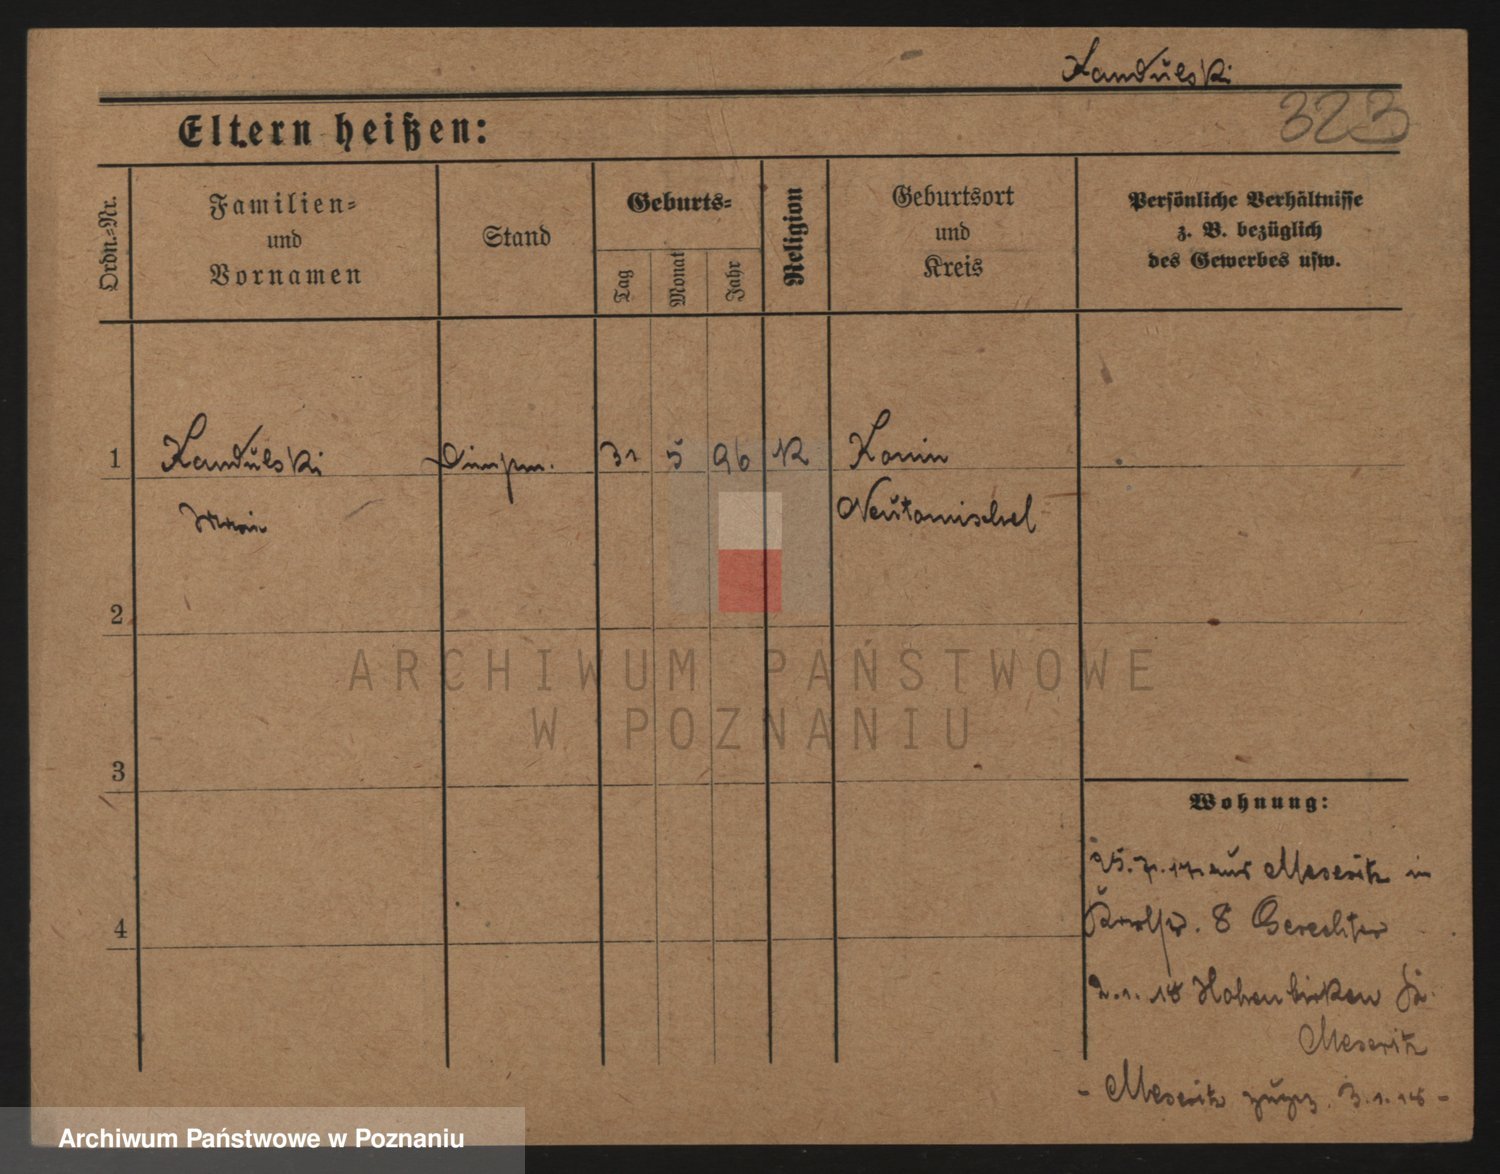 Kandulski
323
Eltern heißen:
Ordn.-Nr.
Familien-
und
Vornamen
Stand
Geburts-
Tag
Monat
Jahr
Religion
Geburtsort
und
Kreis
Persönliche Verhältnisse
z. B. bezüglich
des Gewerbes usw.
1 Kandulski 31 5 96 K Konin
Neutomischel
2
ARCHIWUM PAŃSTWOWE
W POZNANIU
3
Wohnung:
aus Meseritz in
8
4
2.1.18 Hohenbirken
Meseritz
- Meseritz 3.1.18 -
Archiwum Państwowe w Poznaniu